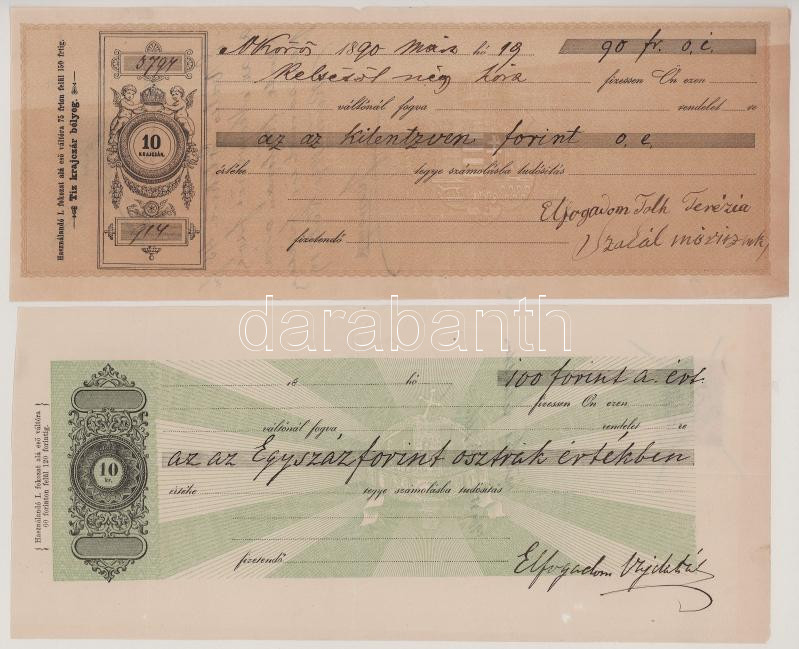 Használandó I. fokozat alá eső váltóra 75 frton felül 150 frtig.
Tiz krajczár bélyeg.
5794
10
KRAJCZÁR.
914
N Körös 1890 márz hó 19 90 fr. o. é.
négy hóra fizessen Ön ezen
váltónál fogva rendelet re
az az kilentzven forint o. e.
értéke tegye számolásba tudósitás
Elfogadom Toth Terézia
fizetendő
darabanth
Használandó I. fokozat alá eső váltóra
60 forinton felül 120 forintig.
10
kr.
18 hó 100 forint a. ért.
fizessen Ön ezen
váltónál fogva rendelet re
az az Egyszáz forint osztrák értékben
értéke tegye számolásba tudósitás
fizetendő
Elfogadom